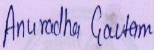 Anuradha Gautam